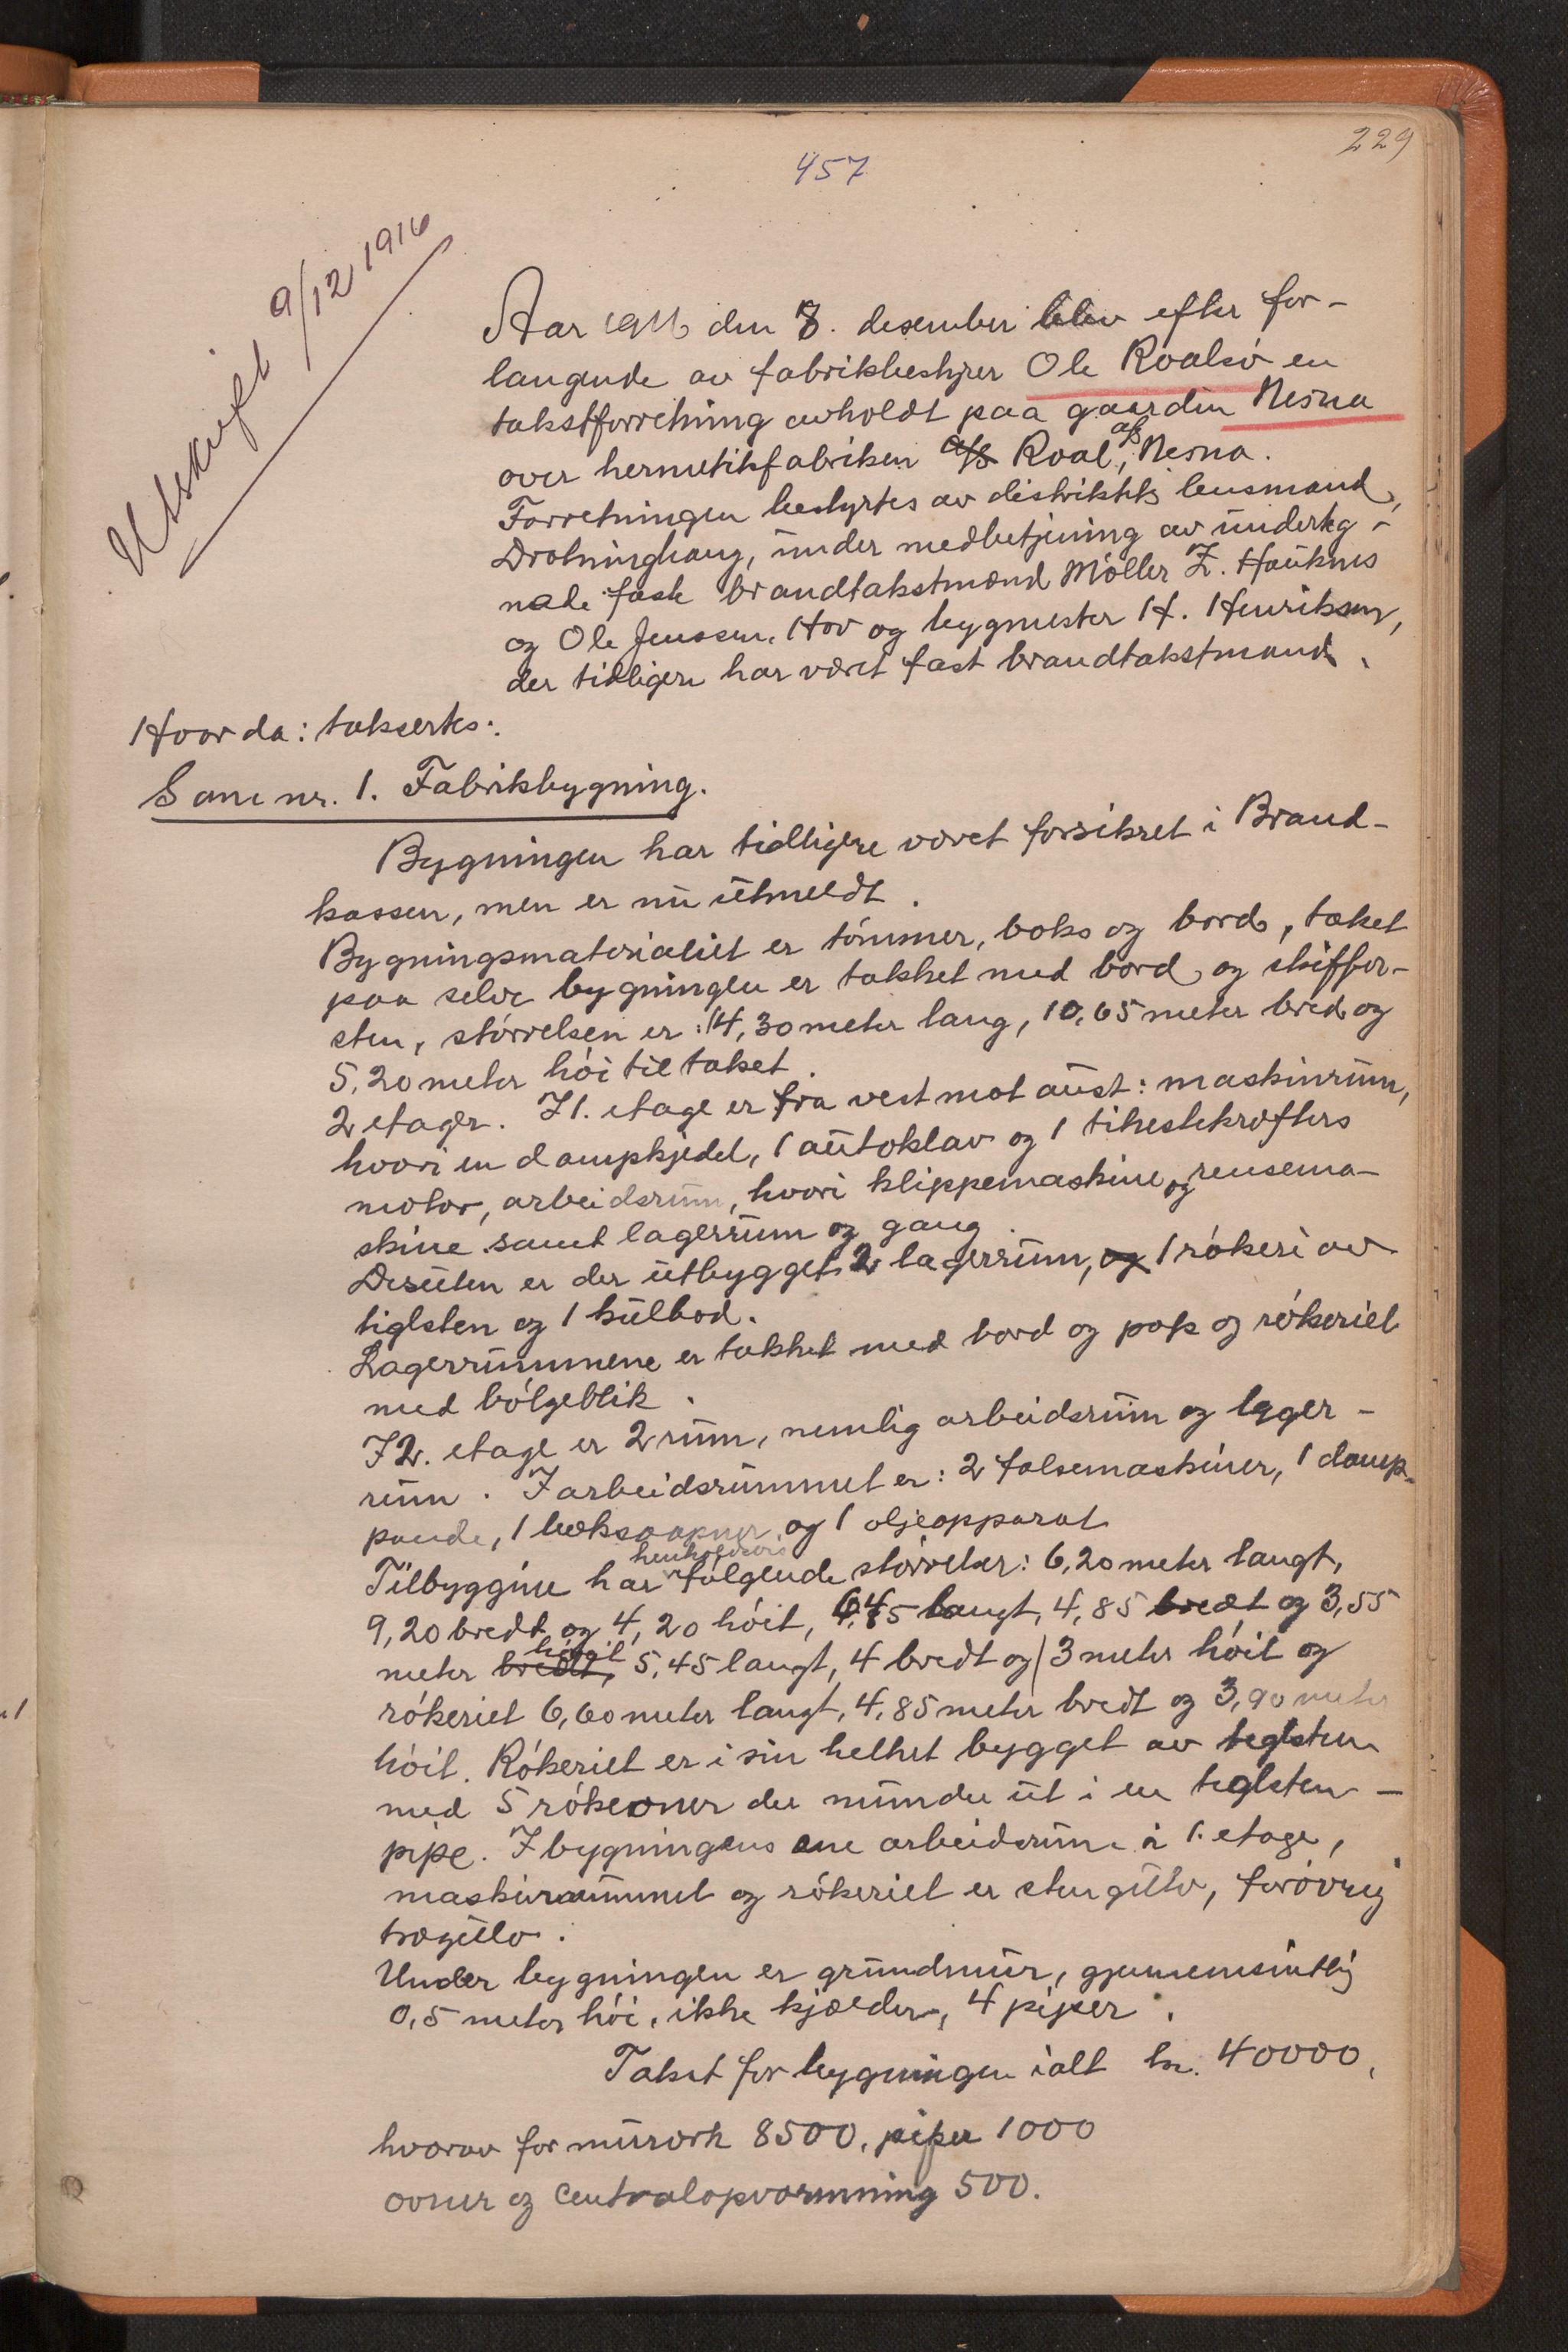 229
457
Utskrift 9/12 1916
Aar 1916 den 8. desember blev efter for-
langende av fabrikbestyrer Ole Roalsö en
takstforretning avholdt paa gaarden Nesna
over hermetikfabriken A/S Roal A/S, Nesna.
Forretningen bestyrtes av distriktets lensmand,
Drotninghaug, under medbetjening av underteg-
nede faste brandtakstmænd Möller Z. Hauknes
og Ole Jenssen, Hov og bygmester H. Henriksen,
der tidligere har været fast brandtakstmand.
Hvor da: taksertes:
Samenr. 1. Fabrikbygning.
Bygningen har tidligere været forsikret i Brand-
kassen, men er nu utmeldt.
Bygningsmaterialet er tömmer, boks og bord, taket
paa selve bygningen er tækket med bord og skiffer-
sten, störrelsen er: 14,30 meter lang, 10,65 meter bred og
5,20 meter höi til taket.
2 etager. I 1. etage er fra vest mot aust: maskinrum,
hvori en dampkjedel, 1 autoklav og 1 tihestekrofters
motor, arbeidsrum, hvori klippemaskine og rensema-
skine samt lagerrum og gang.
Desuten er der utbygget 2 lagerrum, og 1 rökeri av
tiglsten og 1 kulbod.
Lagerrummene er tækket med bord og pap og rökeriet
med bölgeblik.
I 2. etage er 2 rum, nemlig arbeidsrum og lager-
rum. I arbeidsrummet er: 2 falsemaskiner, 1 damp-
pande, 1 boksaapner og 1 oljeapparat
Tilbyggene har henholdsvis fölgende störrelser: 6,20 meter langt,
9,20 bredt og 4,20 höit, 6,45 langt, 4,85 bredt og 3,55
meter bredt, höit, 5,45 langt, 4 bredt og 3 meter höit og
rökeriet 6,60 meter langt, 4,85 meter bredt og 3,90 meter
höit. Rökeriet er i sin helhet bygget av teglsten
med 5 rökeovner der munder ut i en teglsten-
pipe. I bygningens ene arbeidsrum i 1. etage,
maskinrummet og rökeriet er stengulv, forövrig
trægulv.
Under bygningen er grundmur, gjennemsnitlig
0,5 meter höi, ikke kjælder, 4 piper.
Takst for bygningen ialt kr. 40000,
hvorav for murverk 8500, piper 1000
ovner og centralopvarmning 500.